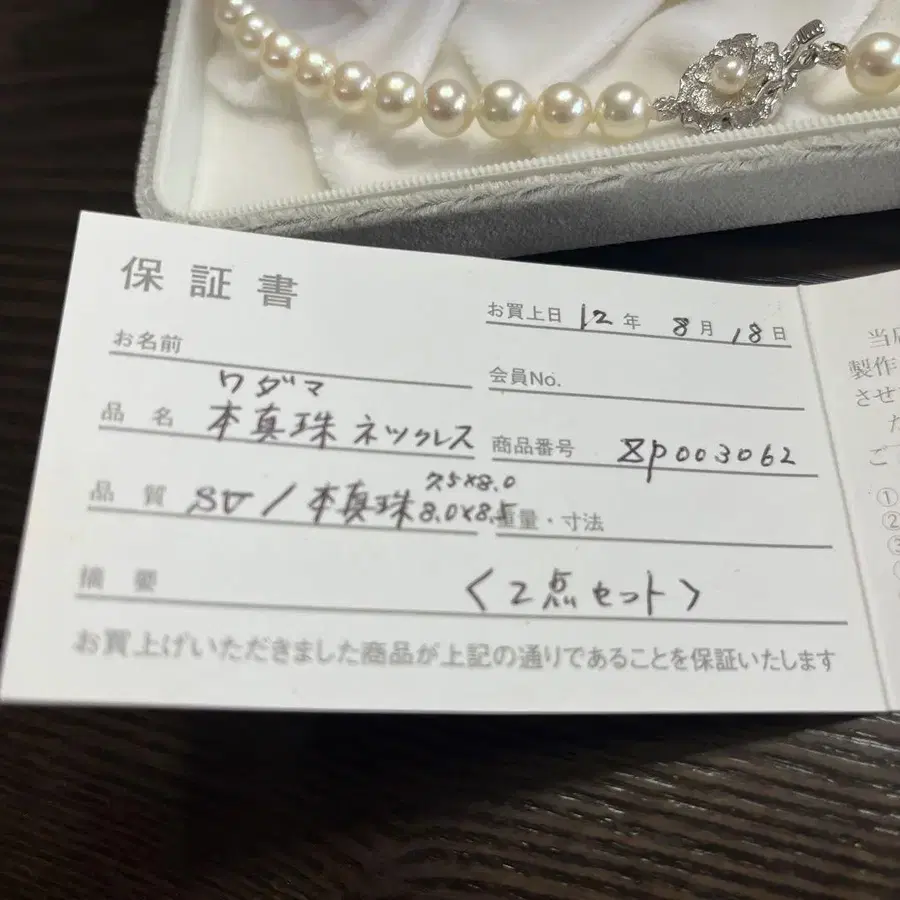 保証書
お買上日 12年 8月 18日
お名前
会員No.
ワダマ
品名 本真珠ネックレス
商品番号 8P003062
7.5×8.0
品質 SV/本真珠 8.0×8.5
重量・寸法
摘要 〈2点セット〉
お買上げいただきました商品が上記の通りであることを保証いたします
製作
させ
ご
①
②
③